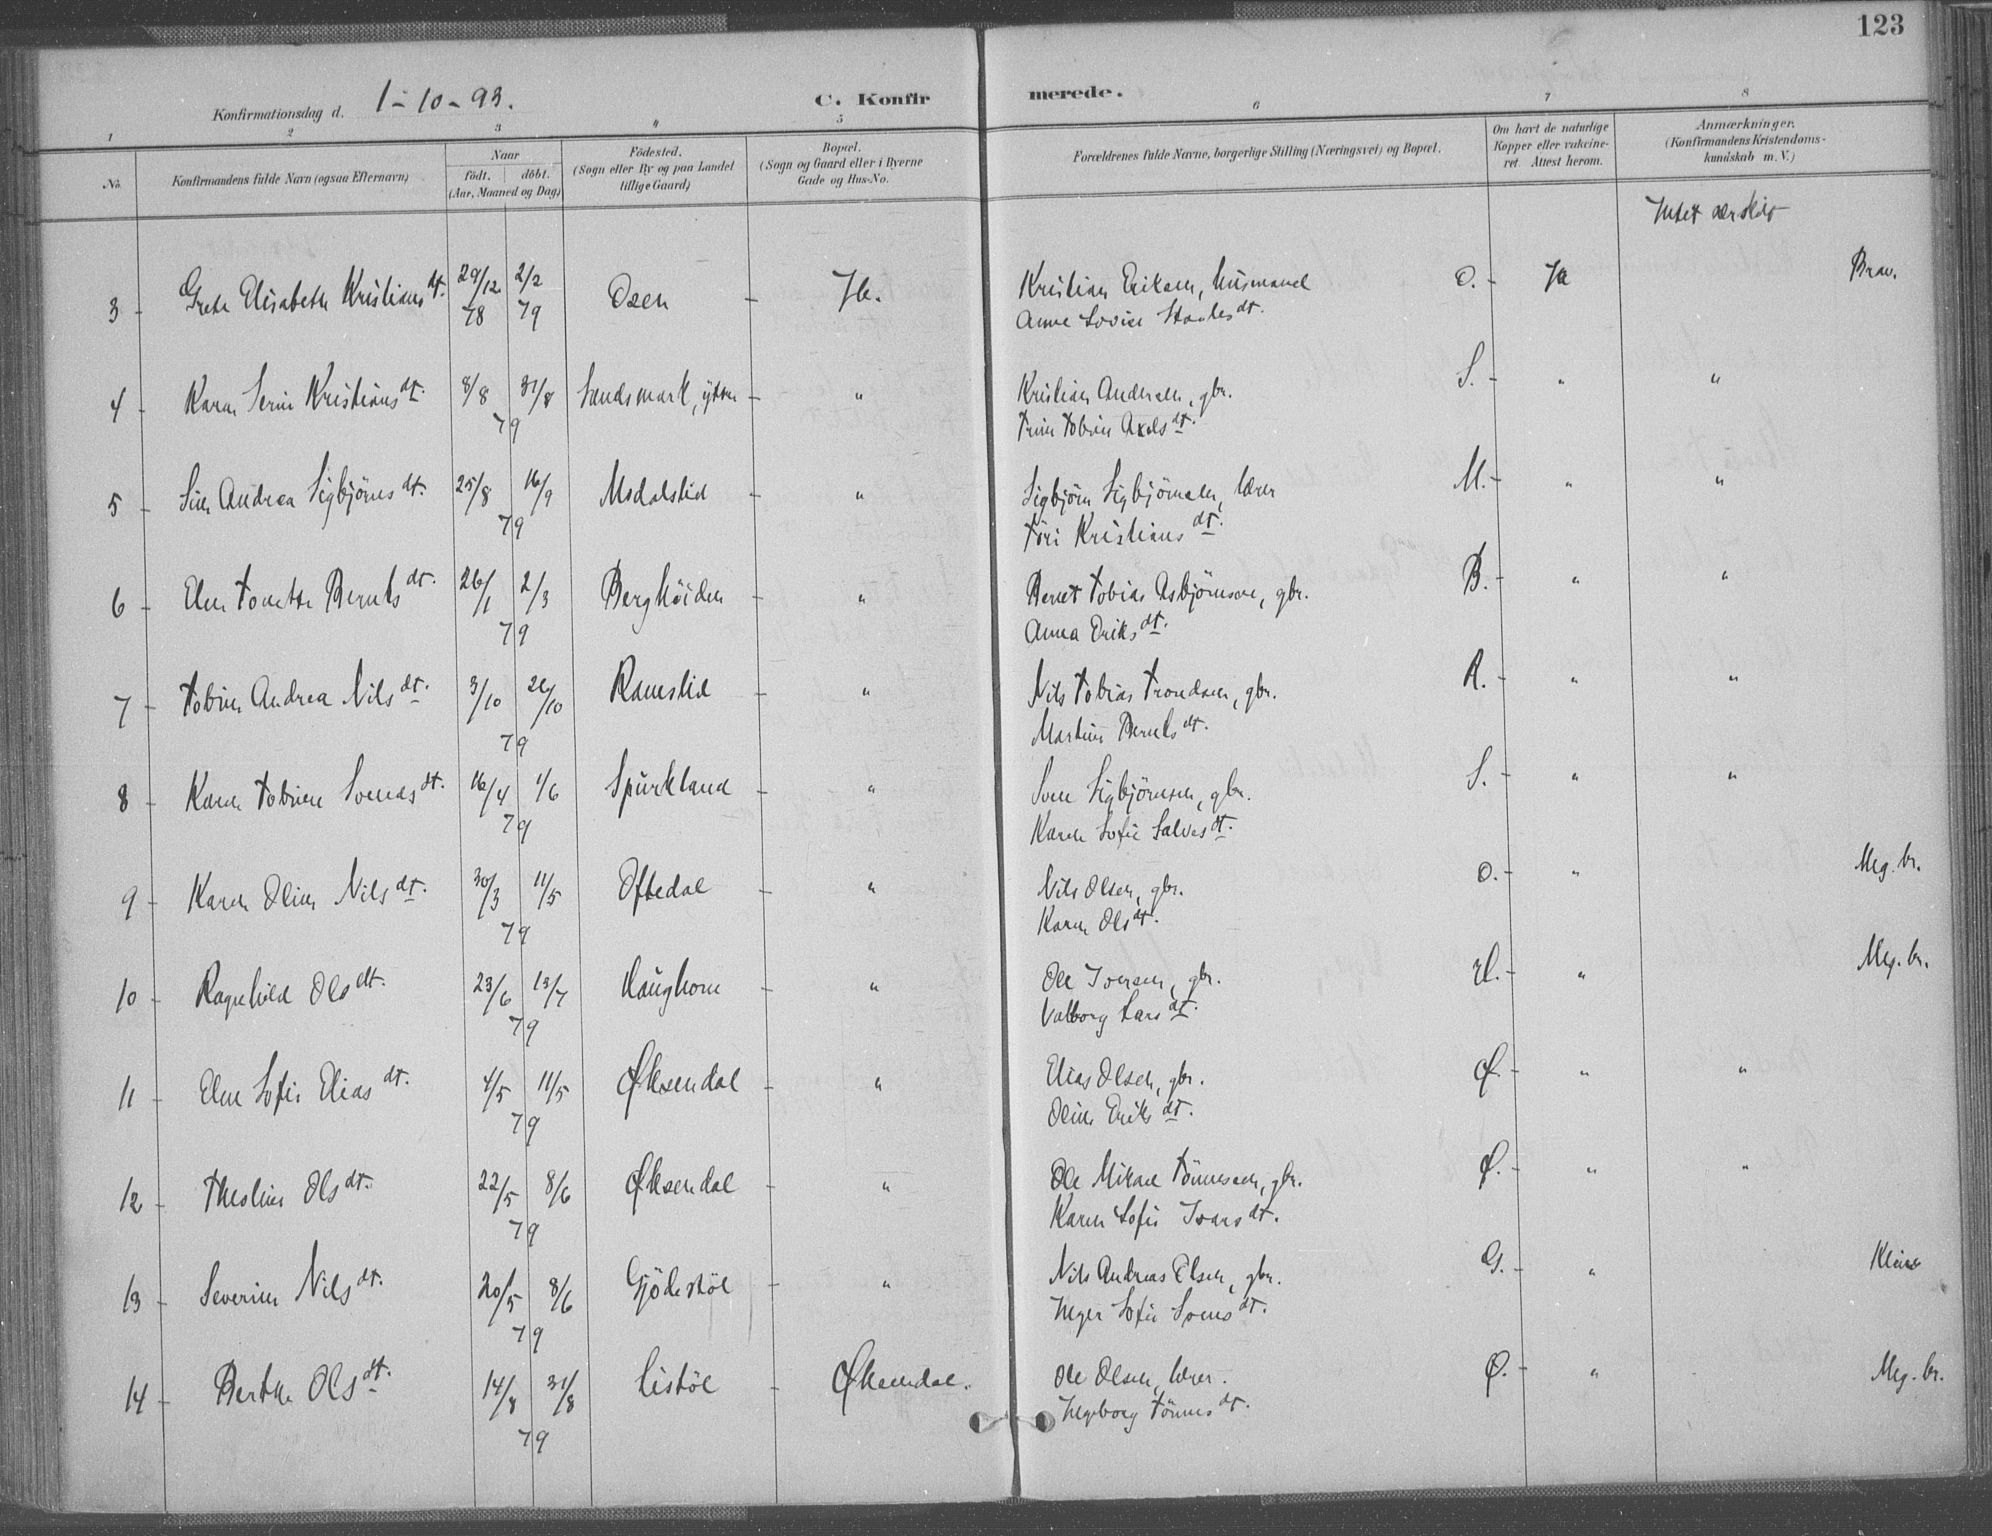 123
Konfirmationsdag d. 1-10-93.
C. Konfirmerede.
1 2 3 4 5 6 7 8
No. Konfirmandens fulde Navn (ogsaa Efternavn) Naar födt. döbt. (Aar, Maaned og Dag) Födested. (Sogn eller By og paa Landet tillige Gaard) Bopæl. (Sogn og Gaard eller i Byerne Gade og Hus-No. Forældrenes fulde Navne, borgerlige Stilling (Næringsvei) og Bopæl. Om havt de naturlige Kopper eller vaksineret. Attest herom. Anmærkninger. (Konfirmandens Kristendomskundskab m. V.)
Intet særskilt
3 - Grete Elisabeth Kristians dt. 29/12 78 2/2 79 Osen - Kristian Eriksen, husmand O. - Ja Brav.
Anne Lovise Staales dt.
4 - Karen Serine Kristians dt. 8/8 31/8 79 Sandsmark, ytre - " Kristian Andersen, gbr. S. - " "
Trine Tobine Axels dt.
5 - Sine Andrea Sigbjörns dt. 25/8 16/9 79 Msdalslid - " Sigbjörn Sigbjörnsen, lærer M. - " "
Tori Kristians dt.
6 - Elen Tonette Bernts dt. 26/1 2/3 79 Berghöiden - " Bernt Tobias Asbjörnsen, gbr. B. - " "
Anna Eriks dt.
7 - Tobine Andrea Nils dt. 3/10 26/10 79 Ramslid - " Nils Tobias Trondsen, gbr. R. - " "
Martine Bernts dt.
8 - Karen Tobine Svends dt. 16/4 1/6 79 Spurkland - " Sven Sigbjörnsen, gbr. S. - " "
Karen Sofie Salves dt.
9 - Karen Oline Nils dt. 30/3 11/5 79 Oftedal - " Nils Olsen, gbr. O. - " Meg. br.
Karen Ols dt.
10 - Ragnhild Ols dt. 23/6 13/7 79 Haughom - " Ole Iversen, gbr. H. - " Meg. br.
Valborg Lars dt.
11 - Elen Sofie Elias dt. 4/5 11/5 79 Øksendal - " Elias Olsen, gbr. Ø. - " "
Oline Eriks dt.
12 - Theoline Ols dt. 22/5 8/6 79 Øksendal - " Ole Mikael Tönnesen, gbr. Ø. - " "
Karen Sofie Ivars dt.
13 - Severine Nils dt. 20/5 8/6 79 Gjödestöl - " Nils Andreas Elsen, gbr. G. - "
Inger Sofie Svens dt.
14 - Berthe Ols dt. 14/8 31/8 79 Listöl - Øksendal. Ole Olsen, lærer. Ø. - " Meg. br.
Ingeborg Tönnes dt.